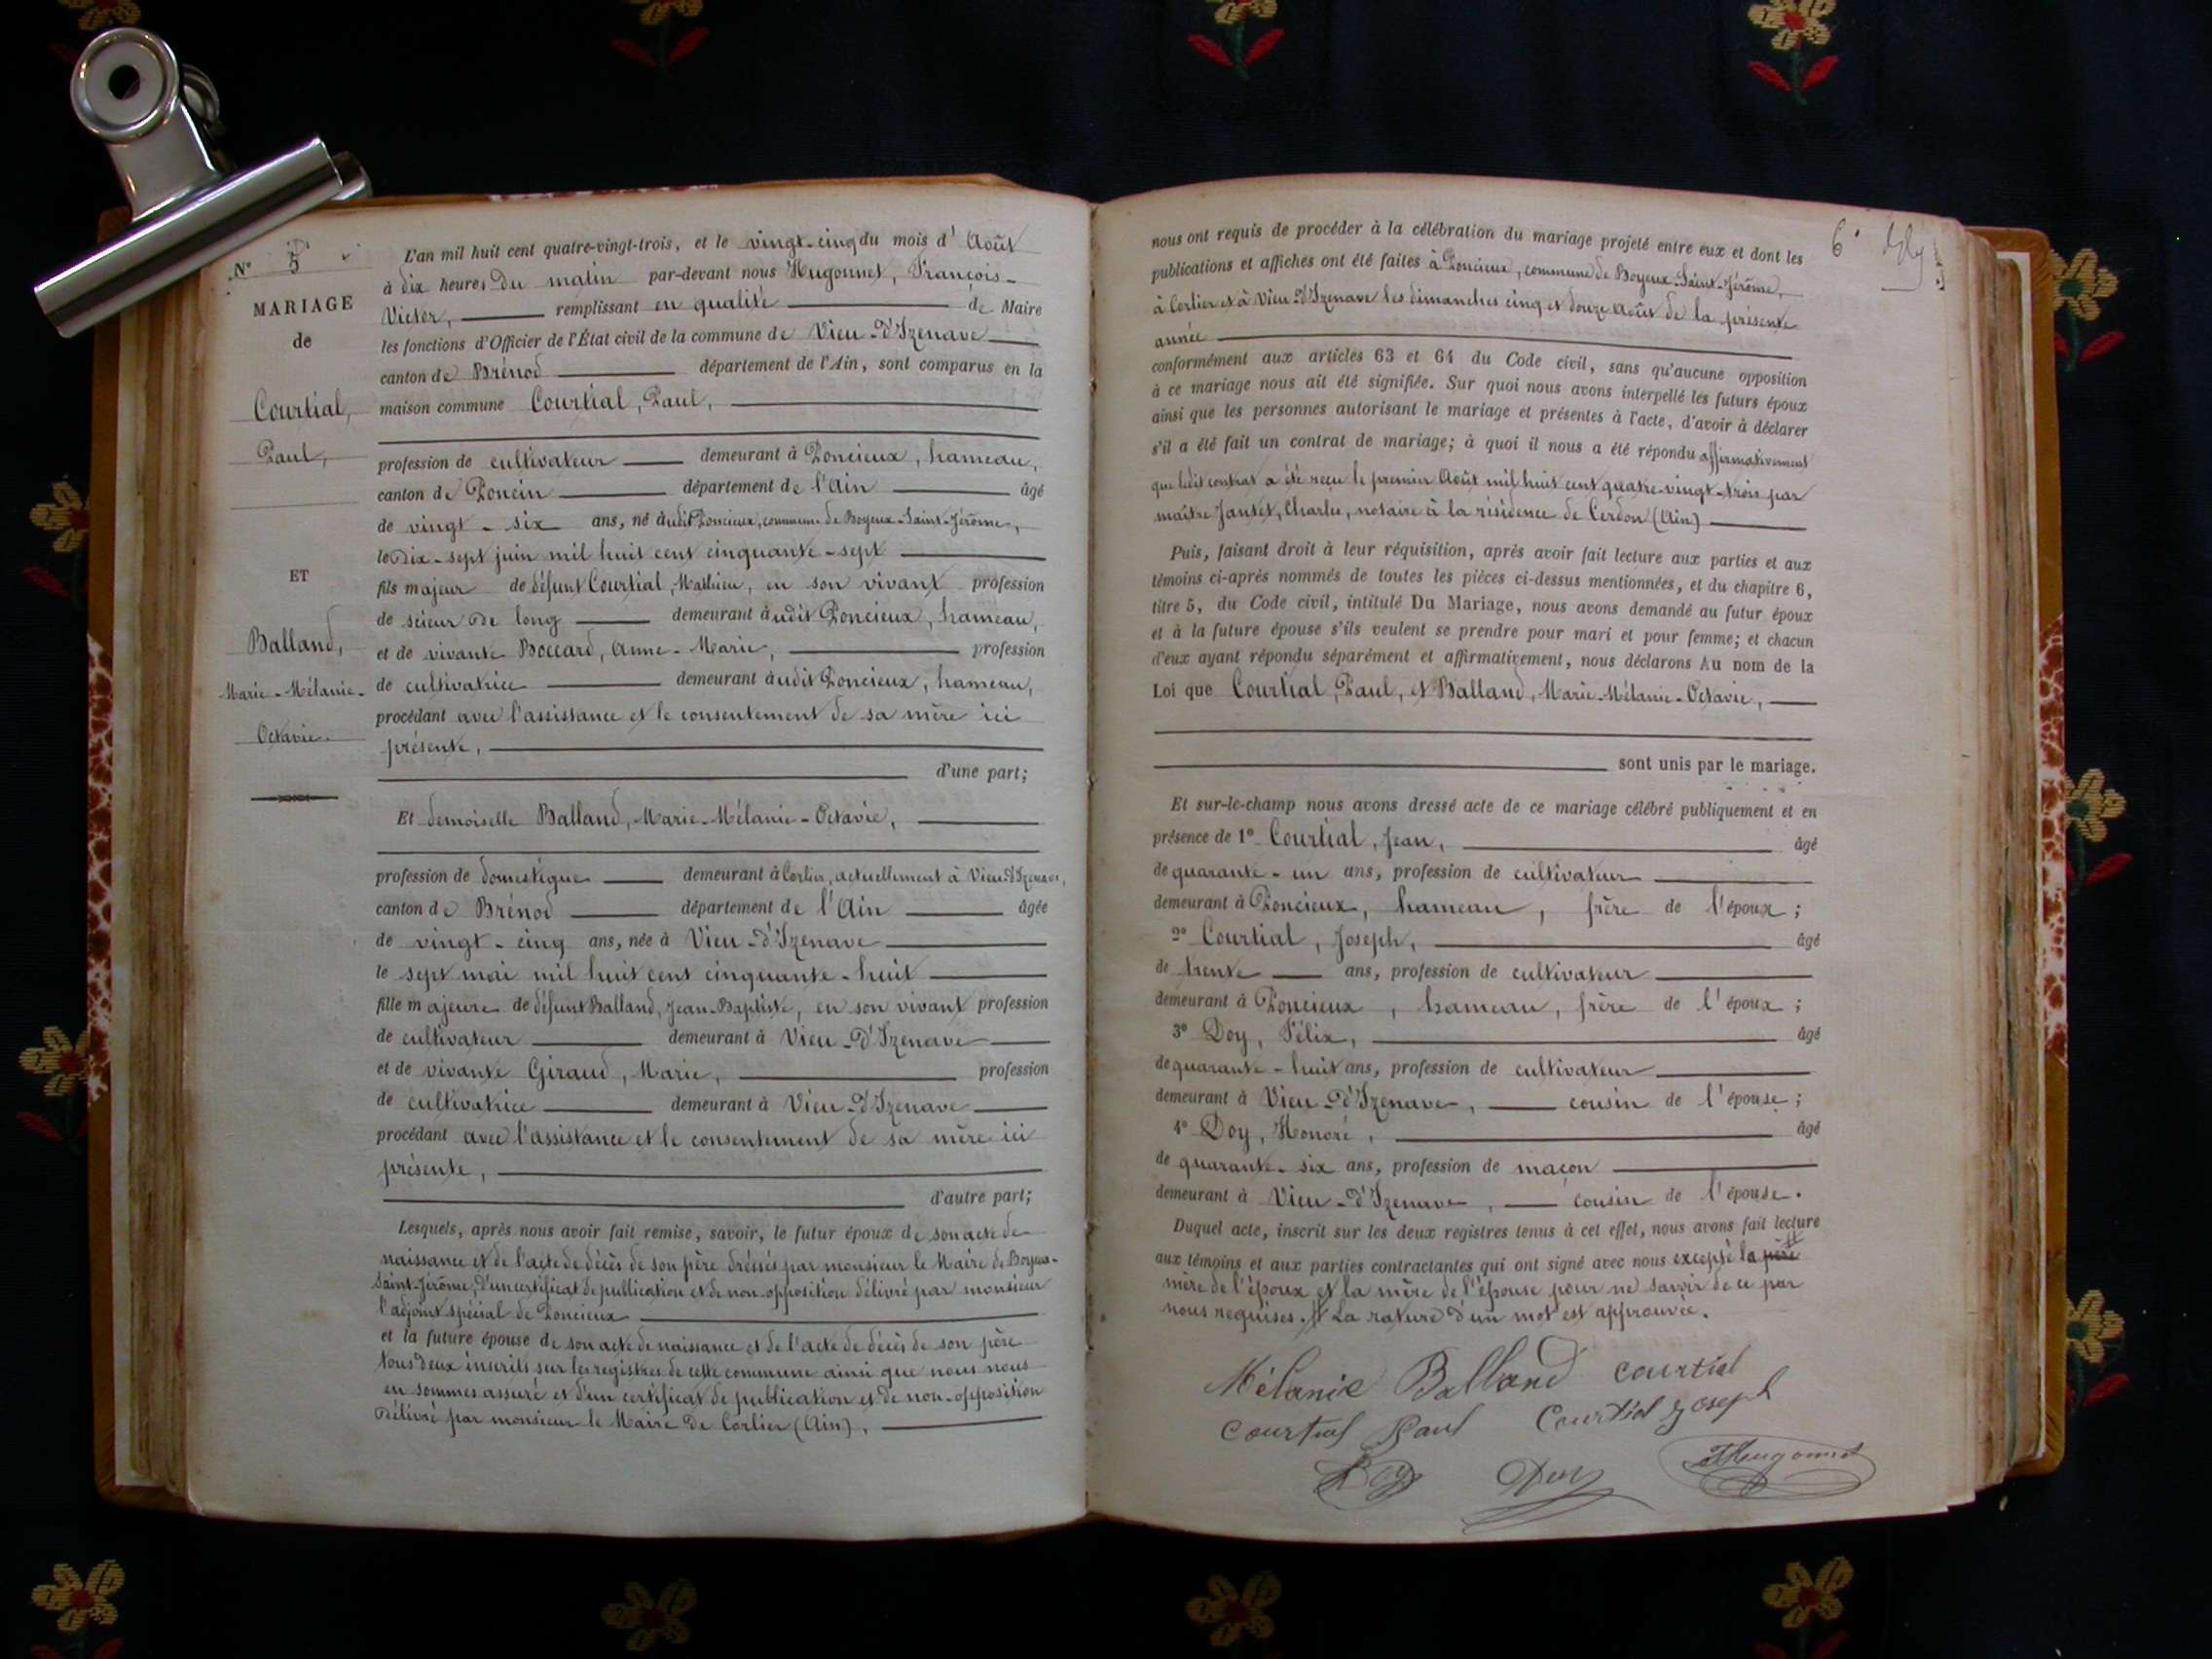 N° 5
MARIAGE
de
Courtial,
Paul,
ET
Balland,
Marie-Mélanie-
Octavie.
L'an mil huit cent quatre-vingt-trois, et le vingt-cinq du mois d'Août
à dix heures du matin par-devant nous Hugonnet, François-
Victor, remplissant en qualité de Maire
les fonctions d'Officier de l'État civil de la commune de Vieu-d'Izenave
canton de Brénod département de l'Ain, sont comparus en la
maison commune Courtial, Paul,
profession de cultivateur demeurant à Poncieux, hameau,
canton de Poncin département de l'Ain âgé
de vingt-six ans, né audit Poncieux, commune de Boyeux-Saint-Jérôme,
le dix-sept juin mil huit cent cinquante-sept
fils majeur de défunt Courtial, Mathieu, en son vivant profession
de scieur de long demeurant audit Poncieux, hameau,
et de vivante Boccard, Anne-Marie, profession
de cultivatrice demeurant audit Poncieux, hameau,
procédant avec l'assistance et le consentement de sa mère ici
présente,
d'une part;
Et demoiselle Balland, Marie-Mélanie-Octavie,
profession de domestique demeurant à Corlier, actuellement à Vieu-d'Izenave,
canton de Brénod département de l'Ain âgée
de vingt-cinq ans, née à Vieu-d'Izenave
le sept mai mil huit cent cinquante-huit
fille majeure de défunt Balland, Jean-Baptiste, en son vivant profession
de cultivateur demeurant à Vieu-d'Izenave
et de vivante Giraud, Marie, profession
de cultivatrice demeurant à Vieu-d'Izenave
procédant avec l'assistance et le consentement de sa mère ici
présente,
d'autre part;
Lesquels, après nous avoir fait remise, savoir, le futur époux de son acte de
naissance et de l'acte de décès de son père dressés par monsieur le Maire de Boyeux-
Saint-Jérôme, d'un certificat de publication et de non-opposition délivré par monsieur
l'adjoint spécial de Poncieux
et la future épouse de son acte de naissance et de l'acte de décès de son père
tous deux inscrits sur les registres de cette commune ainsi que nous nous
en sommes assuré et d'un certificat de publication et de non-opposition
délivré par monsieur le Maire de Corlier (Ain),
6°
nous ont requis de procéder à la célébration du mariage projeté entre eux et dont les
publications et affiches ont été faites à Poncieux, commune de Boyeux-Saint-Jérôme,
à Corlier et à Vieu-d'Izenave les dimanches cinq et douze Août de la présente
année
conformément aux articles 63 et 64 du Code civil, sans qu'aucune opposition
à ce mariage nous ait été signifiée. Sur quoi nous avons interpellé les futurs époux
ainsi que les personnes autorisant le mariage et présentes à l'acte, d'avoir à déclarer
s'il a été fait un contrat de mariage; à quoi il nous a été répondu affirmativement
que ledit contrat a été reçu le premier Août mil huit cent quatre-vingt-trois par
maître Jantet, Charles, notaire à la résidence de Cerdon (Ain)
Puis, faisant droit à leur réquisition, après avoir fait lecture aux parties et aux
témoins ci-après nommés de toutes les pièces ci-dessus mentionnées, et du chapitre 6,
titre 5, du Code civil, intitulé Du Mariage, nous avons demandé au futur époux
et à la future épouse s'ils veulent se prendre pour mari et pour femme; et chacun
d'eux ayant répondu séparément et affirmativement, nous déclarons Au nom de la
Loi que Courtial, Paul, et Balland, Marie-Mélanie-Octavie,
sont unis par le mariage.
Et sur-le-champ nous avons dressé acte de ce mariage célébré publiquement et en
présence de 1° Courtial, Jean, âgé
de quarante-un ans, profession de cultivateur
demeurant à Poncieux, hameau, frère de l'époux;
2° Courtial, Joseph, âgé
de trente ans, profession de cultivateur
demeurant à Poncieux, hameau, frère de l'époux;
3° Doy, Félix, âgé
de quarante-huit ans, profession de cultivateur
demeurant à Vieu-d'Izenave, cousin de l'épouse;
4° Doy, Honoré, âgé
de quarante-six ans, profession de maçon
demeurant à Vieu-d'Izenave, cousin de l'épouse.
Duquel acte, inscrit sur les deux registres tenus à cet effet, nous avons fait lecture
aux témoins et aux parties contractantes qui ont signé avec nous excepté la père #
mère de l'époux et la mère de l'épouse pour ne savoir de ce par
nous requises. # La rature d'un mot est approuvée.
Mélanie Balland courtial
courtial Paul Courtial Joseph
Doy Doy Hugonnet